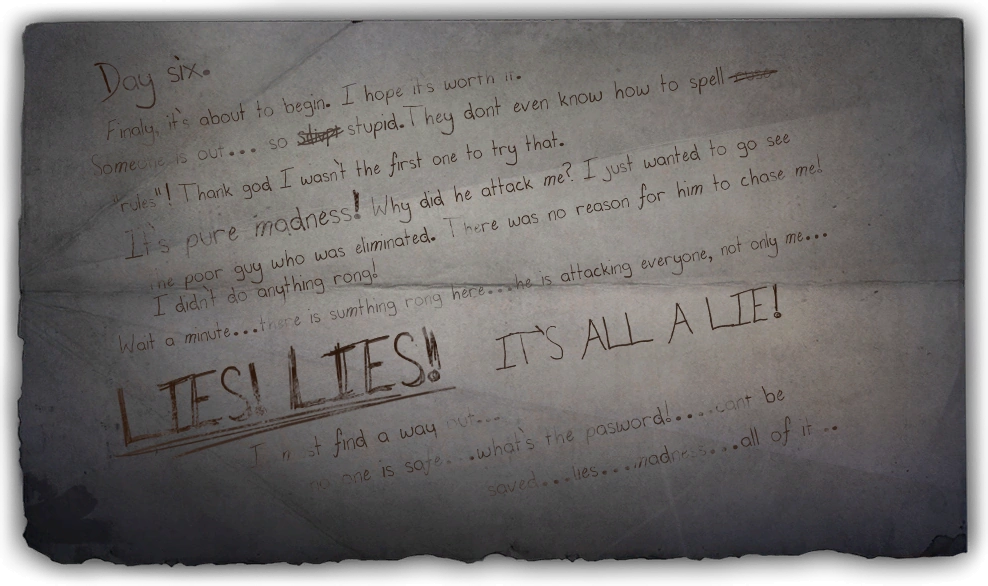 Day six.
Finaly, it's about to begin. I hope it's worth it.
Someone is out... so stupid. They dont even know how to spell
"rules"! Thank god I wasn't the first one to try that.
It's pure madness! Why did he attack me? I just wanted to go see
the poor guy who was eliminated. There was no reason for him to chase me!
I didn't do anything rong!
Wait a minute...there is sumthing rong here...he is attacking everyone, not only me...
LIES! LIES! IT'S ALL A LIE!
I must find a way out...
no one is safe...what's the pasword!....cant be
saved...lies....madness...all of it...